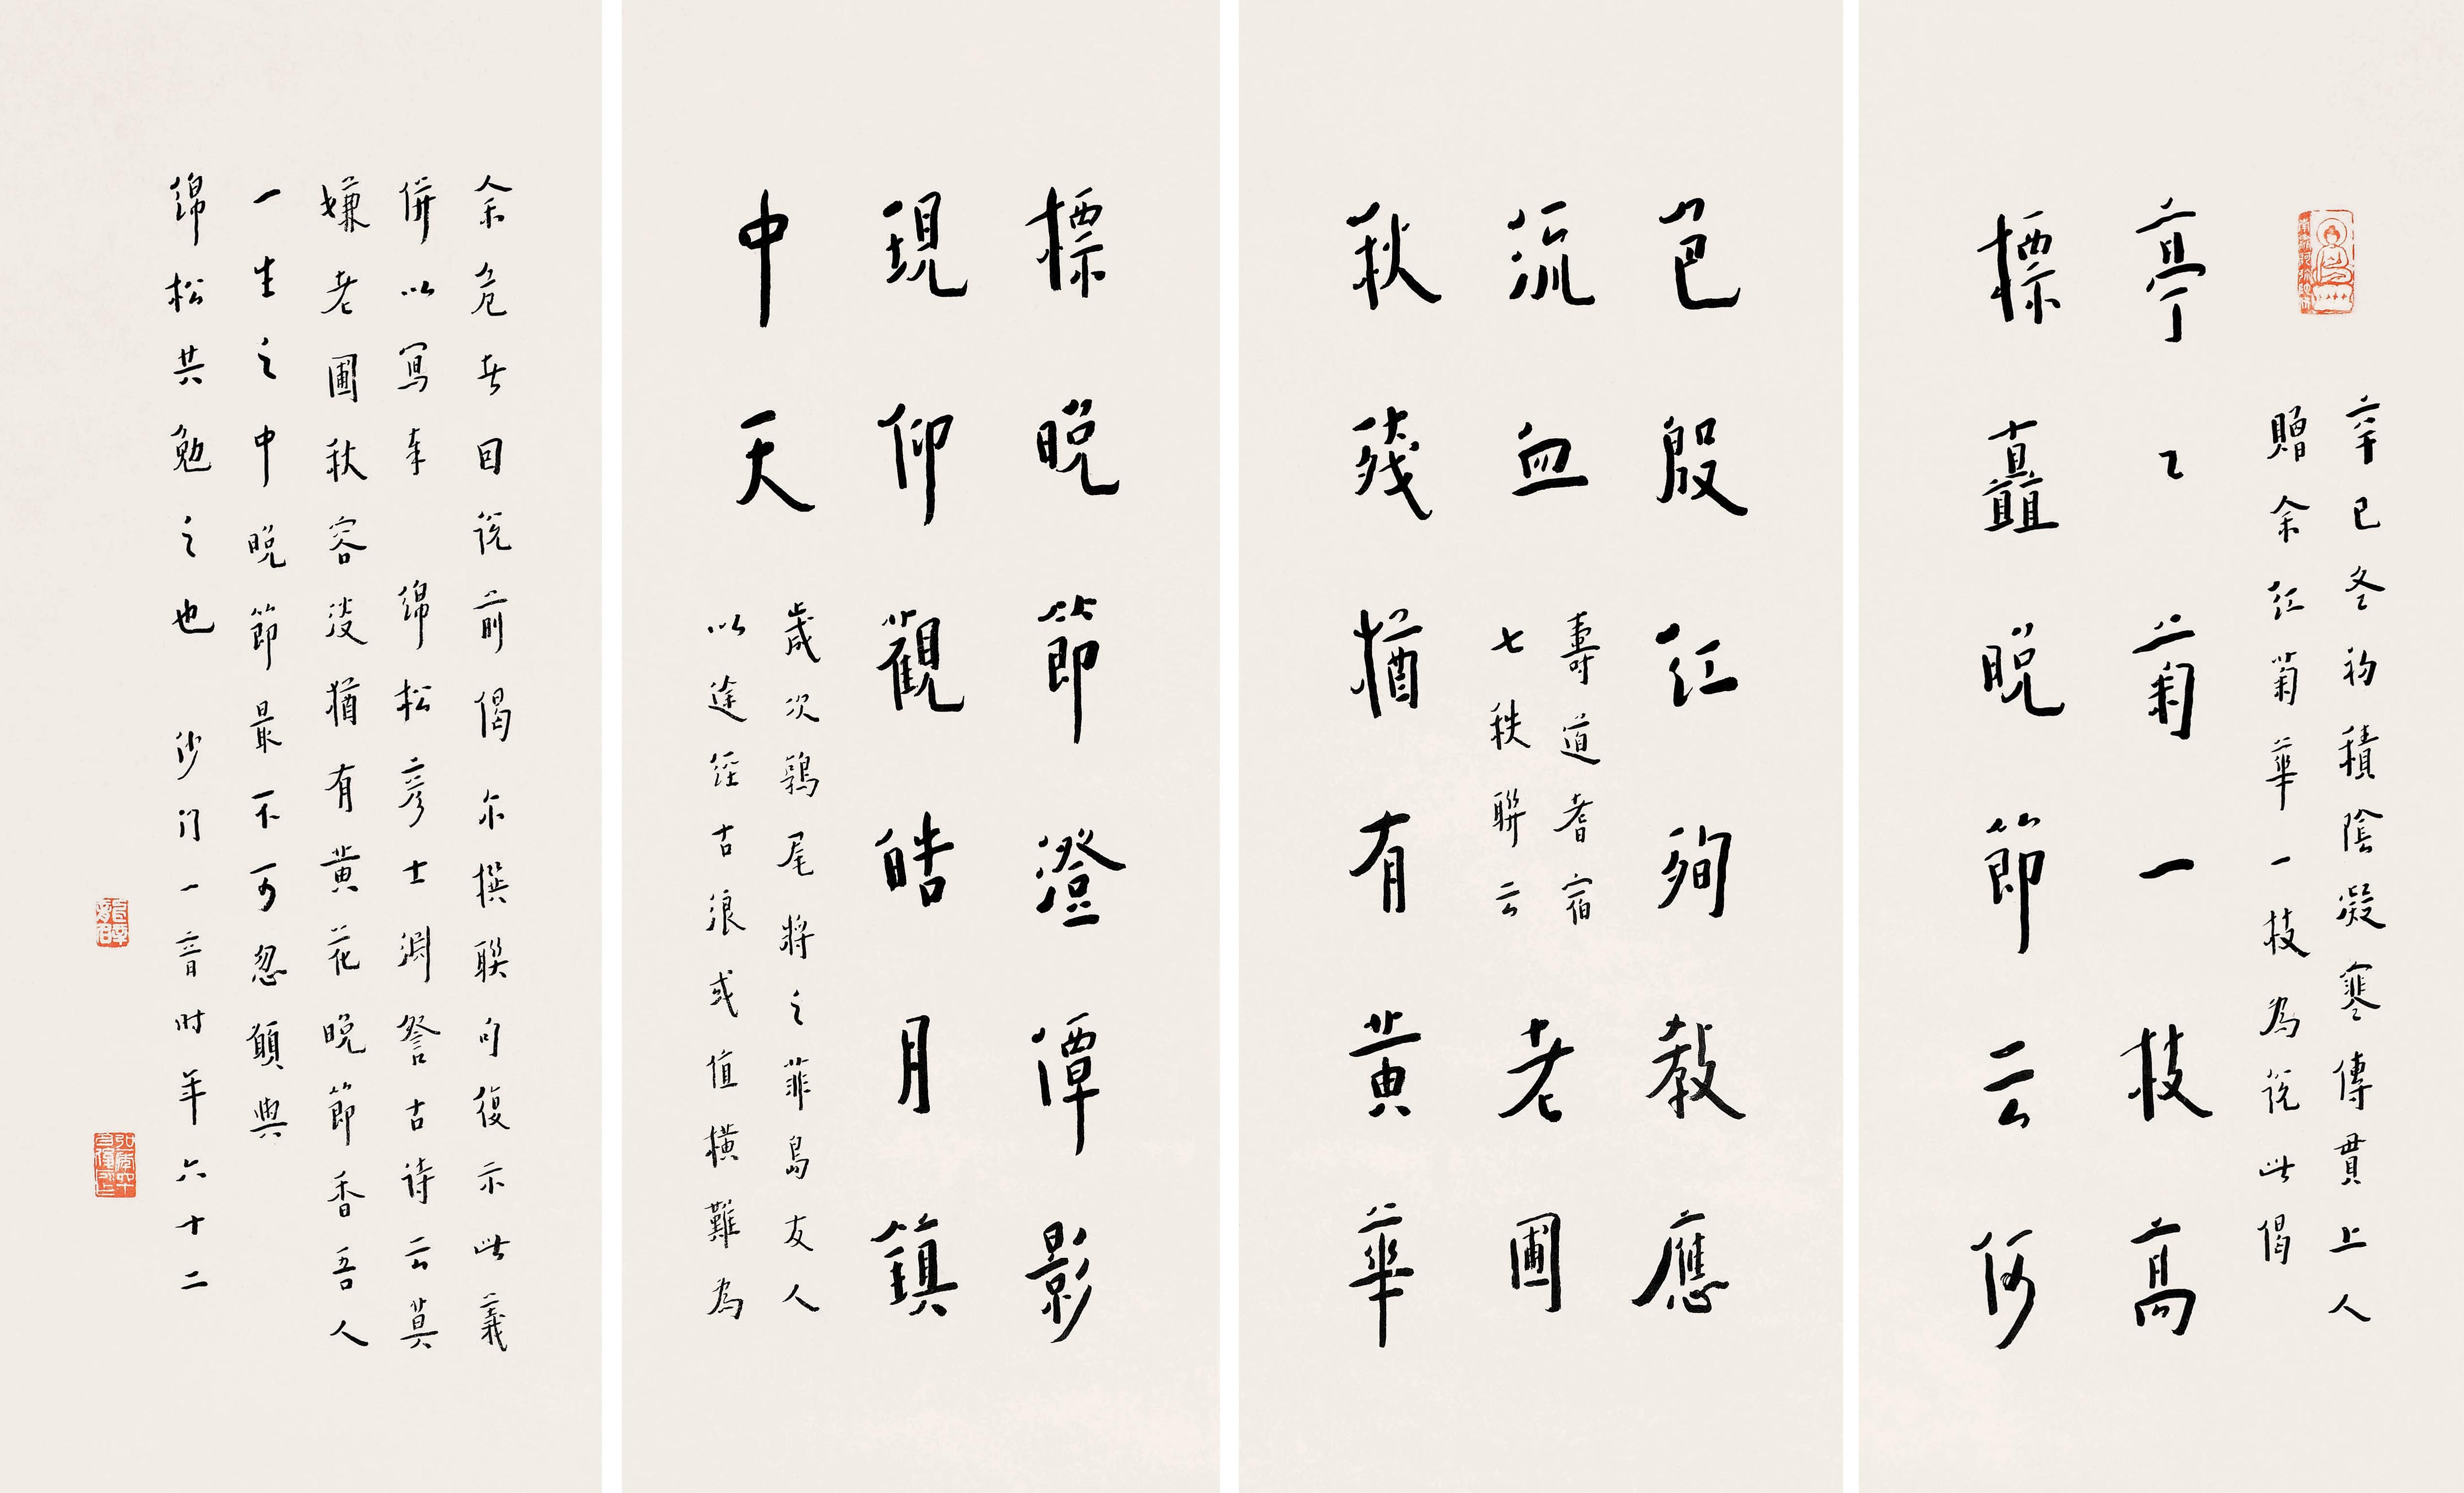 辛巳冬初積陰凝寒傳貫上人
贈余紅菊華一枝為說此偈
亭々菊一枝高
標矗晚節云何
色殷紅殉教應
流血
壽道耆宿
七秩聯云
老圃
秋殘猶有黃華
標晚節澄潭影
現仰觀皓月鎮
中天
歲次鶉尾將之菲島友人
以途徑古浪或值橫難為
余危者因說前偈亦撰聯句復示此義
併以寫奉 綿松彥士淵詧古詩云莫
嫌老圃秋容淡猶有黃花晚節香吾人
一生之中晚節最不可忽願與
綿松共勉之也 沙門一音时年六十二